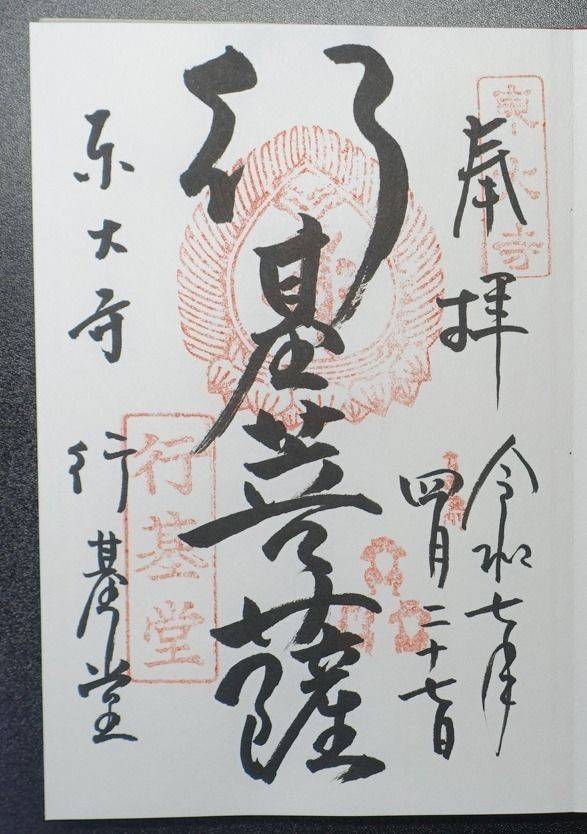 東大寺
奉拝
令和七年
四月二十七日
行基菩薩
東大寺 行基堂
行基堂